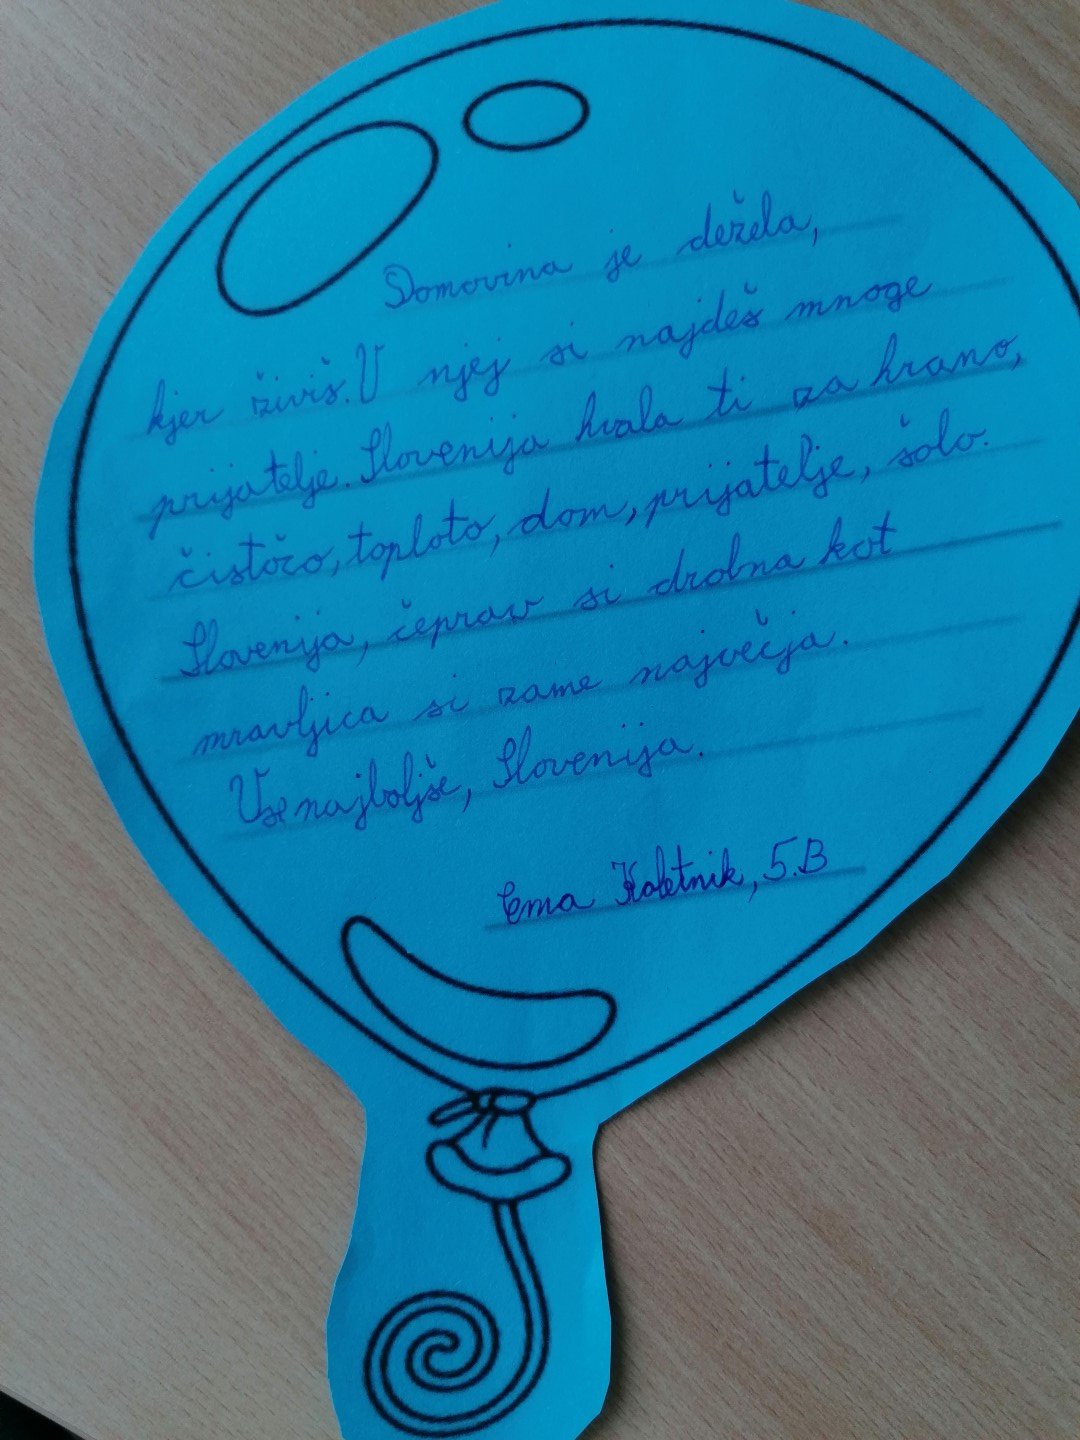 Domovina je dežela,
kjer živiš. V njej si najdeš mnoge
prijatelje. Slovenija hvala ti za hrano,
čistočo, toploto, dom, prijatelje, šolo.
Slovenija, čeprav si drobna kot
mravljica si zame največja.
Vse najboljše, Slovenija.
Ema Koletnik, 5.B